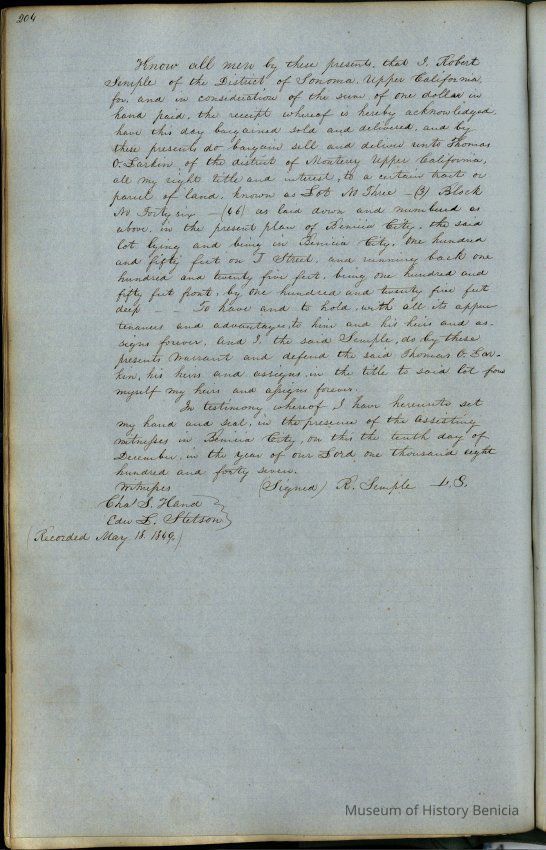 204
Know all men by these presents, that I, Robert
Semple of the District of Sonoma, Upper California,
for, and in consideration of the sum of one dollar in
hand paid, the receipt whereof is hereby acknowledged,
have this day bargained sold and delivered, and by
these presents do bargain sell and deliver unto Thomas
O. Larkin of the district of Monterey Upper California,
all my right title and interest, to a certain tract or
parcel of land, known as Lot No Three - (3) Block
No Forty six - (46) as laid down and numbered as
above, in the present plan of Benicia City, the said
lot lying and being in Benicia City, One hundred
and fifty feet on I Street, and running back one
hundred and twenty five feet, being one hundred and
fifty feet front, by one hundred and twenty five feet
deep - - To have and to hold, with all its appur
tenances and advantages, to him and his heirs and as-
signs forever, And I, the said Semple, do, by these
presents Warrant and defend the said Thomas O. Lar-
kin, his heirs and assigns, in the title to said lot from
myself my heirs and assigns forever.
In testimony whereof I have hereunto set
my hand and seal, in the presence of the assisting
witnesses in Benicia City, on this the tenth day of
December, in the year of our Lord one thousand eight
hundred and forty seven.
Witnesses (Signed) R. Semple L.S.
Chas S. Hand
Edw L. Stetson
(Recorded May 18. 1849.)
Museum of History Benicia